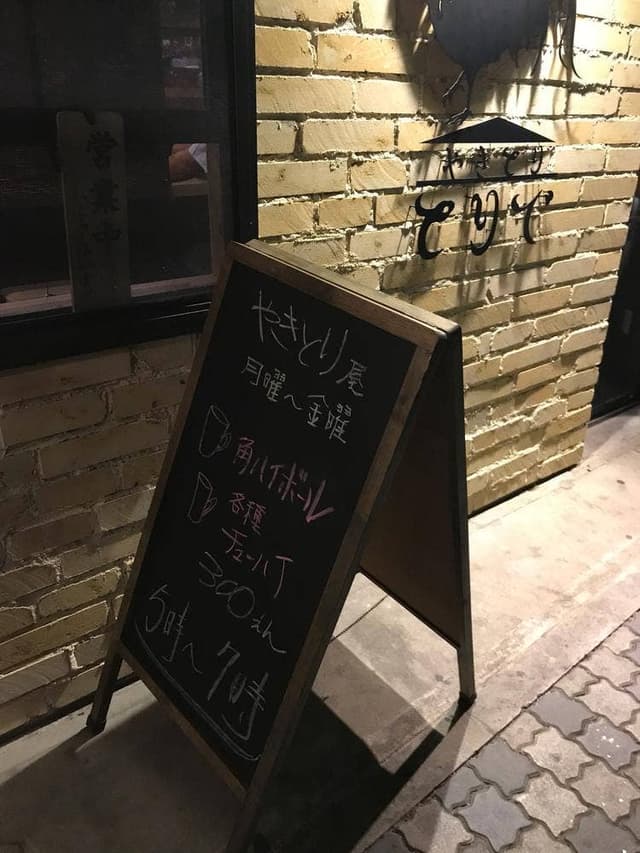 営業中
やきとり
とりで
やきとり屋
月曜～金曜
角ハイボール
各種
チューハイ
300えん
5時～7時